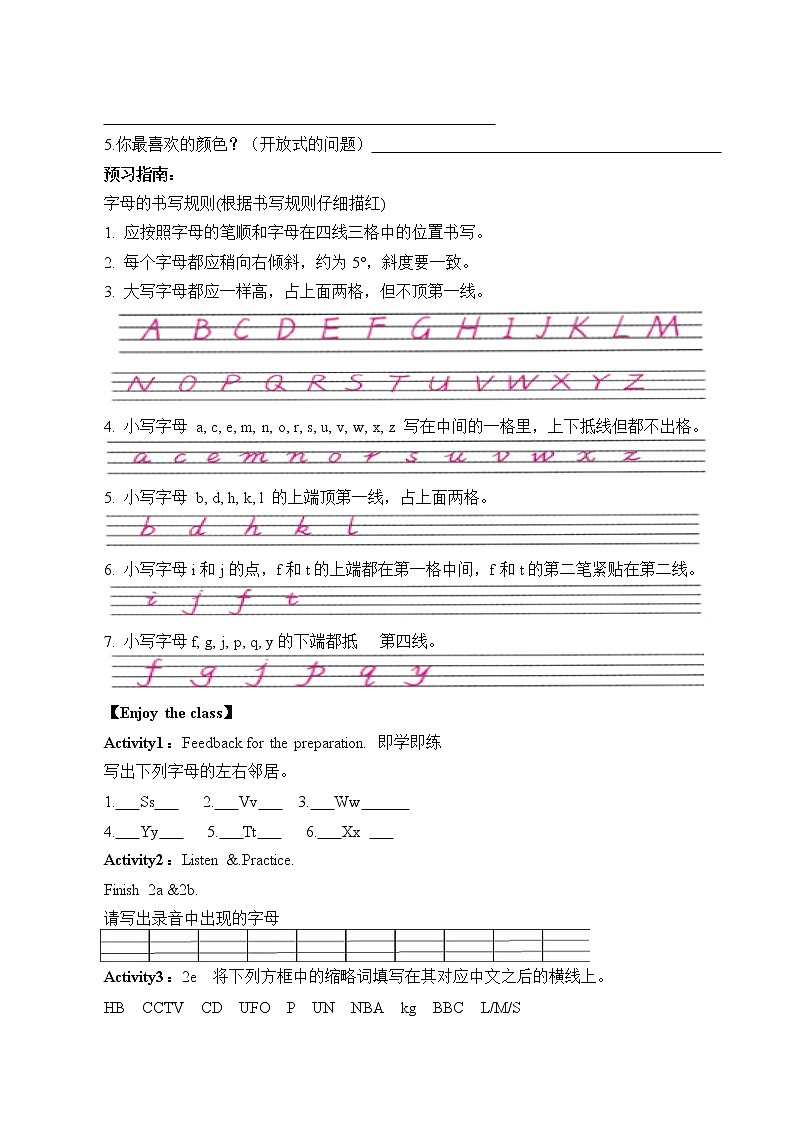 5.你最喜欢的颜色？（开放式的问题）
预习指南：
字母的书写规则(根据书写规则仔细描红)
1. 应按照字母的笔顺和字母在四线三格中的位置书写。
2. 每个字母都应稍向右倾斜，约为 5°，斜度要一致。
3. 大写字母都应一样高，占上面两格，但不顶第一线。
A B C D E F G H I J K L M
N O P Q R S T U V W X Y Z
4. 小写字母 a, c, e, m, n, o, r, s, u, v, w, x, z 写在中间的一格里，上下抵线但都不出格。
a c e m n o r s u v w x z
5. 小写字母 b, d, h, k, l 的上端顶第一线，占上面两格。
b d h k l
6. 小写字母 i 和 j 的点，f 和 t 的上端都在第一格中间，f 和 t 的第二笔紧贴在第二线。
i j f t
7. 小写字母 f, g, j, p, q, y 的下端都抵 第四线。
f g j p q y
【Enjoy the class】
Activity1：Feedback for the preparation. 即学即练
写出下列字母的左右邻居。
1.___Ss___ 2.___Vv___ 3.___Ww______
4.___Yy___ 5.___Tt___ 6.___Xx ___
Activity2：Listen &.Practice.
Finish 2a &2b.
请写出录音中出现的字母
Activity3：2e 将下列方框中的缩略词填写在其对应中文之后的横线上。
HB CCTV CD UFO P UN NBA kg BBC L/M/S